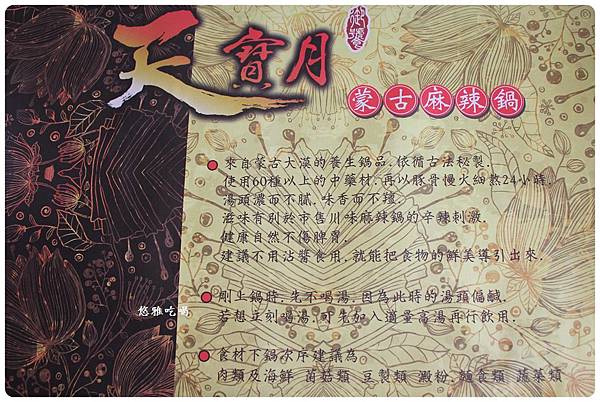 天寶月
御饗
蒙古麻辣鍋
來自蒙古大漠的養生鍋品.依循古法秘製.
使用60種以上的中藥材.再以豚骨慢火細熬24小時.
湯頭濃而不膩.味香而不羶.
滋味有別於市售川味麻辣鍋的辛辣刺激.
健康自然不傷脾胃.
建議不用沾醬食用.就能把食物的鮮美導引出來.
剛上鍋時.先不喝湯.因為此時的湯頭偏鹹.
若想立刻喝湯.可先加入適量高湯再行飲用.
食材下鍋次序建議為
肉類及海鮮 菌菇類 豆製類 澱粉.麵食類 蔬菜類
悠雅吃喝